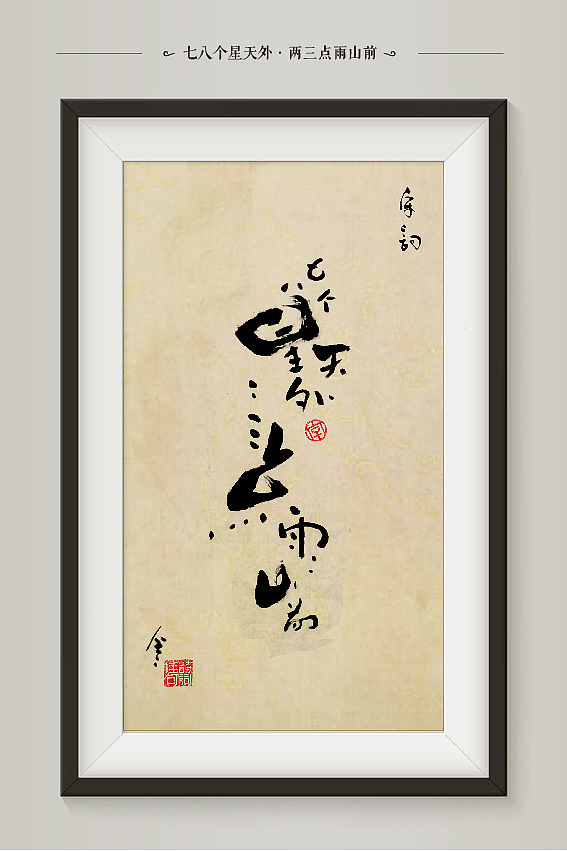 七八个星天外·两三点雨山前
宋词
七
八个
星
天
外
三点
雨
山
前